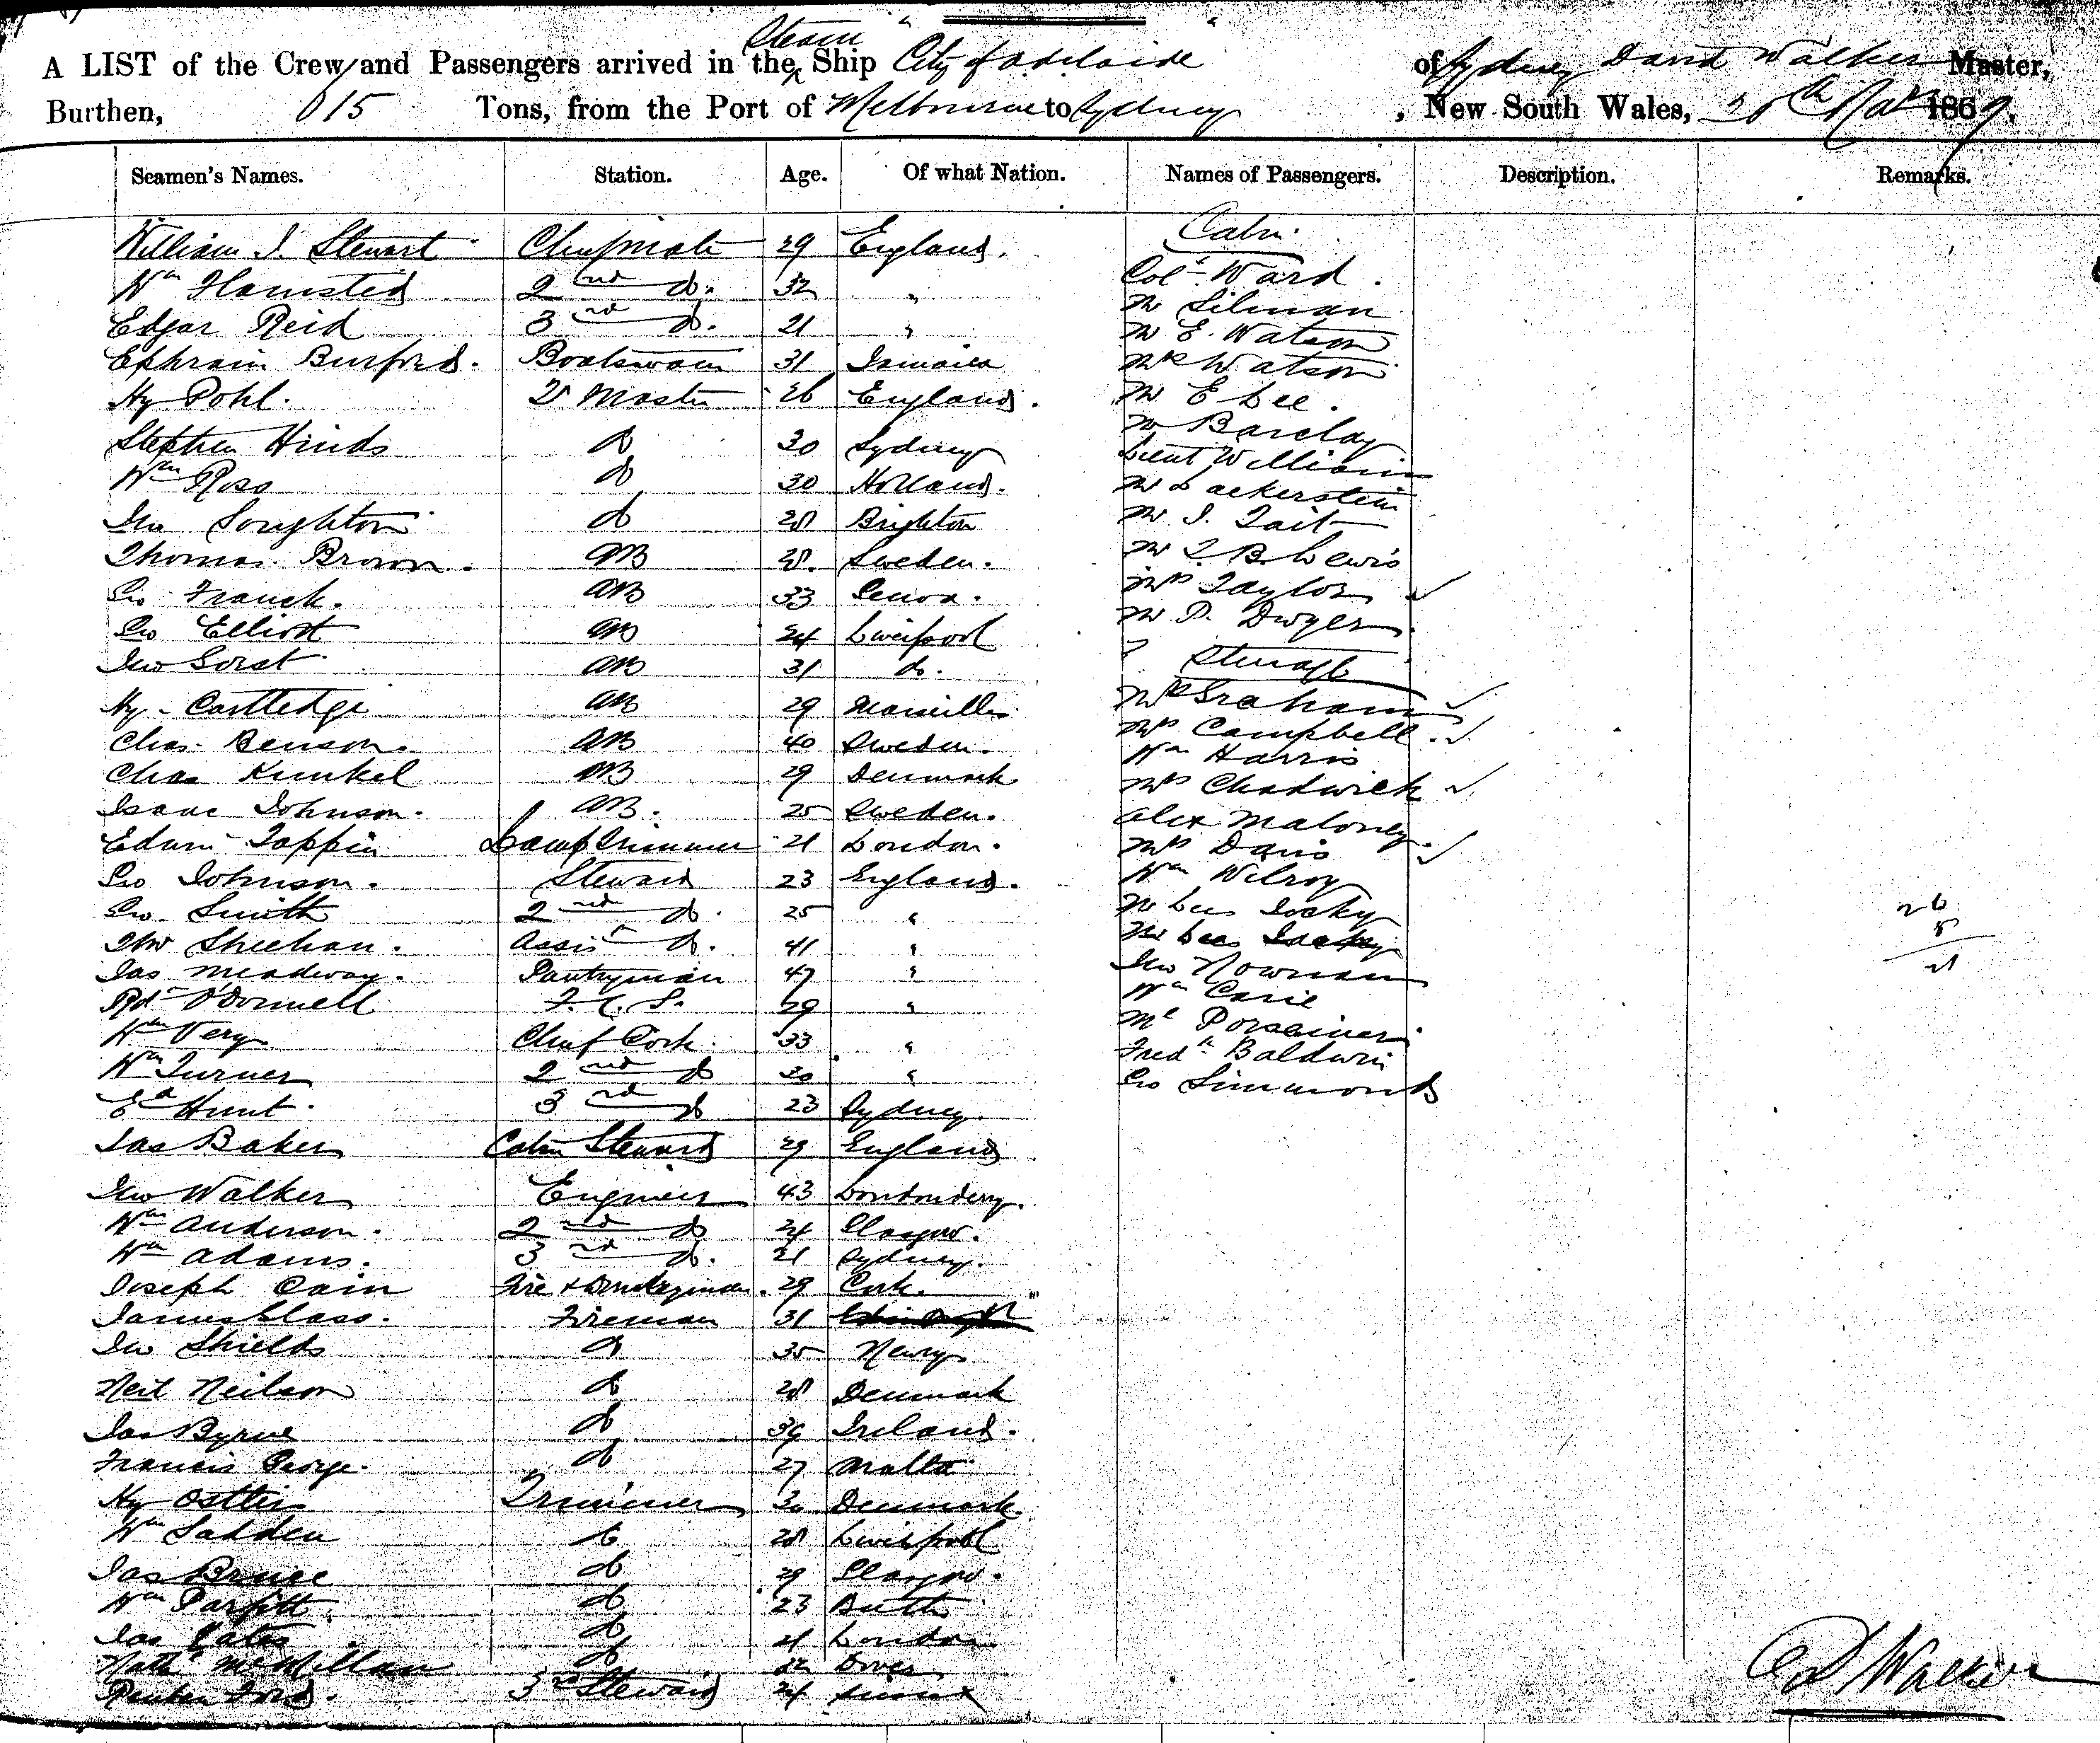 A LIST of the Crew and Passengers arrived in the Steam Ship "City of Adelaide" of Sydney David Walker Master,
Burthen, 615 Tons, from the Port of Melbourne to Sydney, New South Wales, 1869.
Seamen's Names. Station. Age. Of what Nation. Names of Passengers. Description. Remarks.
William J. Stewart Chief Mate 29 England.
Wm Flamsted 2nd do. 32 "
Edgar Reid 3rd do. 21 "
Ephraim Burford. Boatswain 31 Jamaica
Hy Pohl. Qr Master 26 England.
Stephen Hinds do 30 Sydney
Wm Ross do 30 Holland.
Jno Soughton do 28 Brighton
Thomas Brown. AB 28. Sweden.
Geo Franck. AB 33 Genoa.
Geo Elliott AB 24 Liverpool
Jno Gorst AB 31 do.
Hy. Cartledge AB 29 Marseilles
Chas. Benson. AB 40 Sweden.
Chas Kunkel AB 29 Denmark
Isaac Johnson. AB. 25 Sweden.
Edwin Toppin Lamp Trimmer 21 London.
Geo Johnson. Steward 23 England.
Geo. Smith 2nd do. 25 "
Sheehan. Assist do. 41 "
Jas Meadway. Pantryman 47 "
Rd O'Donnell F. C. S. 29 "
Wm Very Chief Cook 33 "
Wm Turner 2nd do 30 "
Ed Hunt. 3rd do 23 Sydney.
Jas Baker Cabin Steward 29 England
Jno Walker Engineer 43 Londonderry.
Wm Anderson. 2nd do 24 Glasgow.
Wm Adams. 3rd do. 21 Sydney.
Joseph Cain Fire & Donkeyman. 29 Cork.
James Glass. Fireman 31 Edinburgh
Jno Shields do 35 Newry
Neil Neilson do 28 Denmark
Jas Byrne do 39 Ireland.
Francis George. do 27 Malta
Hy Ostler Trimmer 30 Denmark.
Wm Sadden do 28 Liverpool
Jas Bruce do 29 Glasgow.
Wm Parfitt. do 23
Jas Yates do 21 London
Nathl McMillan do 22 Dover
Reuben Ford. 3rd Steward 24 Sussex
Cabin.
Colt Ward.
Mr Silman
Mr E. Watson
Mrs Watson
Mr E Lee.
Mr Barclay
Lieut William
Mr Lackerstein
Mr J. Tait
Mr T. B. Lewis
Mrs Taylor
Mr P. Dwyer
Steerage
Mrs Graham
Mrs Campbell.
Wm Harris
Mrs Chadwick
Alex Maloney.
Mrs Davis
Wm Wilroy
Jno Nowman
Wm Carie
Fredk Baldwin
Geo Simmonds
26
5
21
D Walker